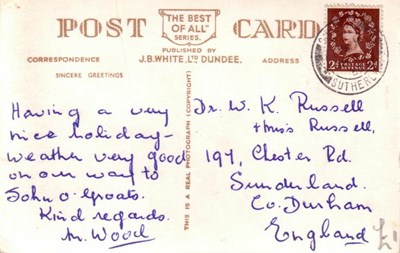 POST CARD
THE BEST
OF ALL"
SERIES.
PUBLISHED BY
J.B. WHITE, LTD DUNDEE.
CORRESPONDENCE
ADDRESS
SINCERE GREETINGS
Having a very
nice holiday-
weather very good
on our way to
John o'Groats.
Kind regards.
M. Wood
THIS IS A REAL PHOTOGRAPH (COPYRIGHT)
Dr. W. K. Russell
+ Mrs Russell,
197, Chester Rd.
Sunderland.
Co. Durham
England
2d POSTAGE REVENUE 2d
SUTHERL
£1